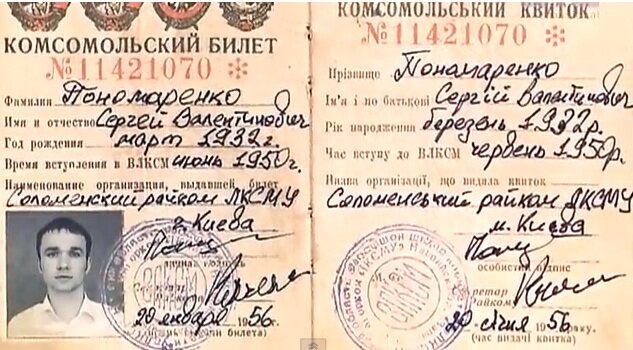 КОМСОМОЛЬСКИЙ БИЛЕТ
№11421070
Фамилия Пономаренко
Имя и отчество Сергей Валентинович
Год рождения март 1932г.
Время вступления в ВЛКСМ июнь 1950г.
Наименование организации, выдавшей билет
Соломенский райком ЛКСМУ
г. Киева
личная подпись
20 января 1956г.
КОМСОМОЛЬСЬКИЙ КВИТОК
№11421070
Прізвище Пономаренко
Ім'я і по батькові Сергій Валентинович
Рік народження березень 1932р.
Час вступу до ВЛКСМ червень 1950р.
Назва організації, що видала квиток
Соломенський райком ЛКСМУ
м. Києва
особистий підпис
20 січня 1956 року.
(час видачі квитка)